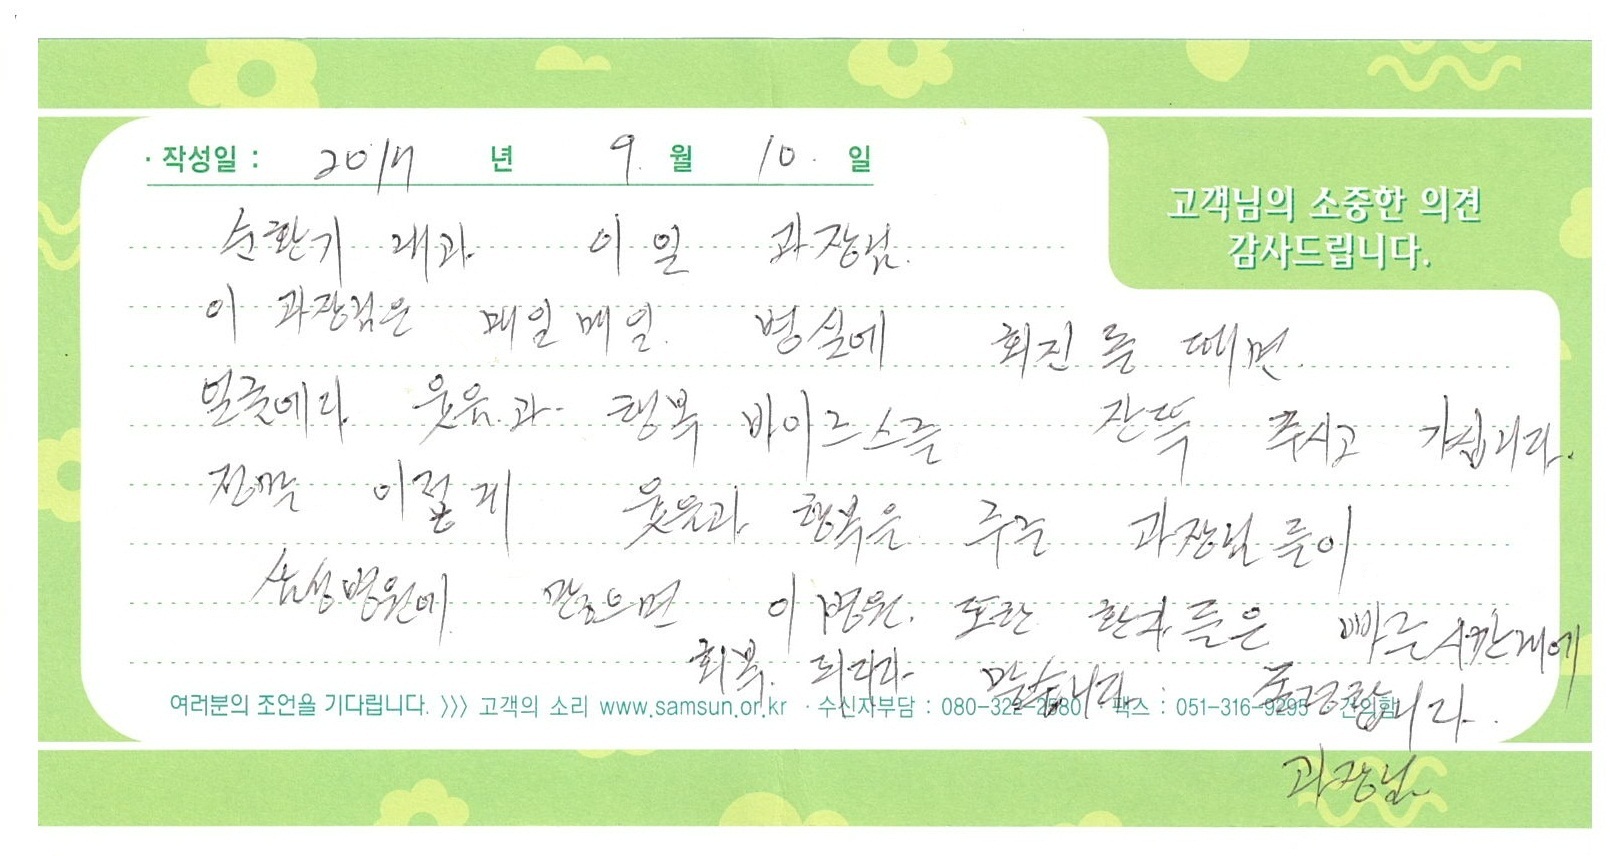 · 작성일 : 2017 년 9. 월 10. 일
고객님의 소중한 의견
감사드립니다.
순환기 내과 이 일 과장님.
이 과장님은 매일매일. 병실에 회진 올 때면
얼굴에다 웃음과 행복 바이르스를 잔뜩 주시고 가십니다.
진짜 이렇게 웃음과 행복을 주는 과장님들이
삼성병원에 많으면 이 병원. 또한 환자들은 빠른 시간내에
회복. 되다라 말씀니다 존경합니다.
과장님
여러분의 조언을 기다립니다. >>> 고객의 소리 www.samsun.or.kr · 수신자부담 : 080-322-2580 팩스 : 051-316-9295 건의함